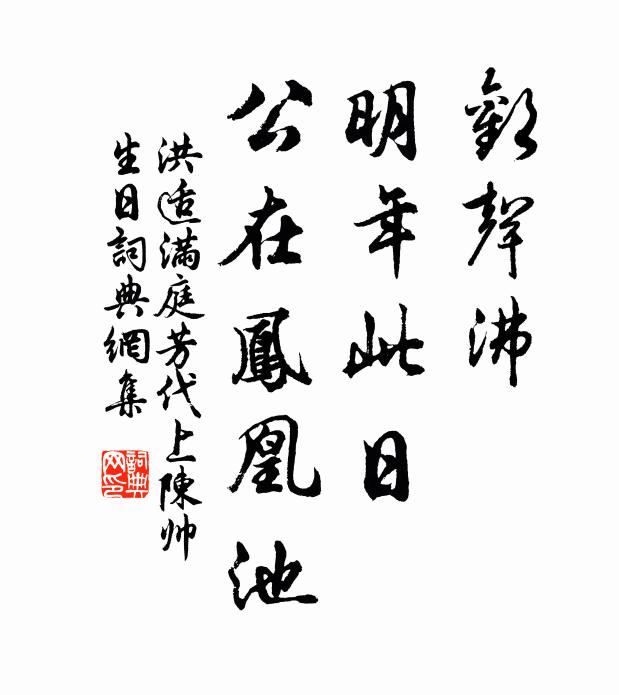 歡聲沸
明年此日
公在鳳凰池
洪适滿庭芳代上陳帅
生日詞典網集
詞典
网印